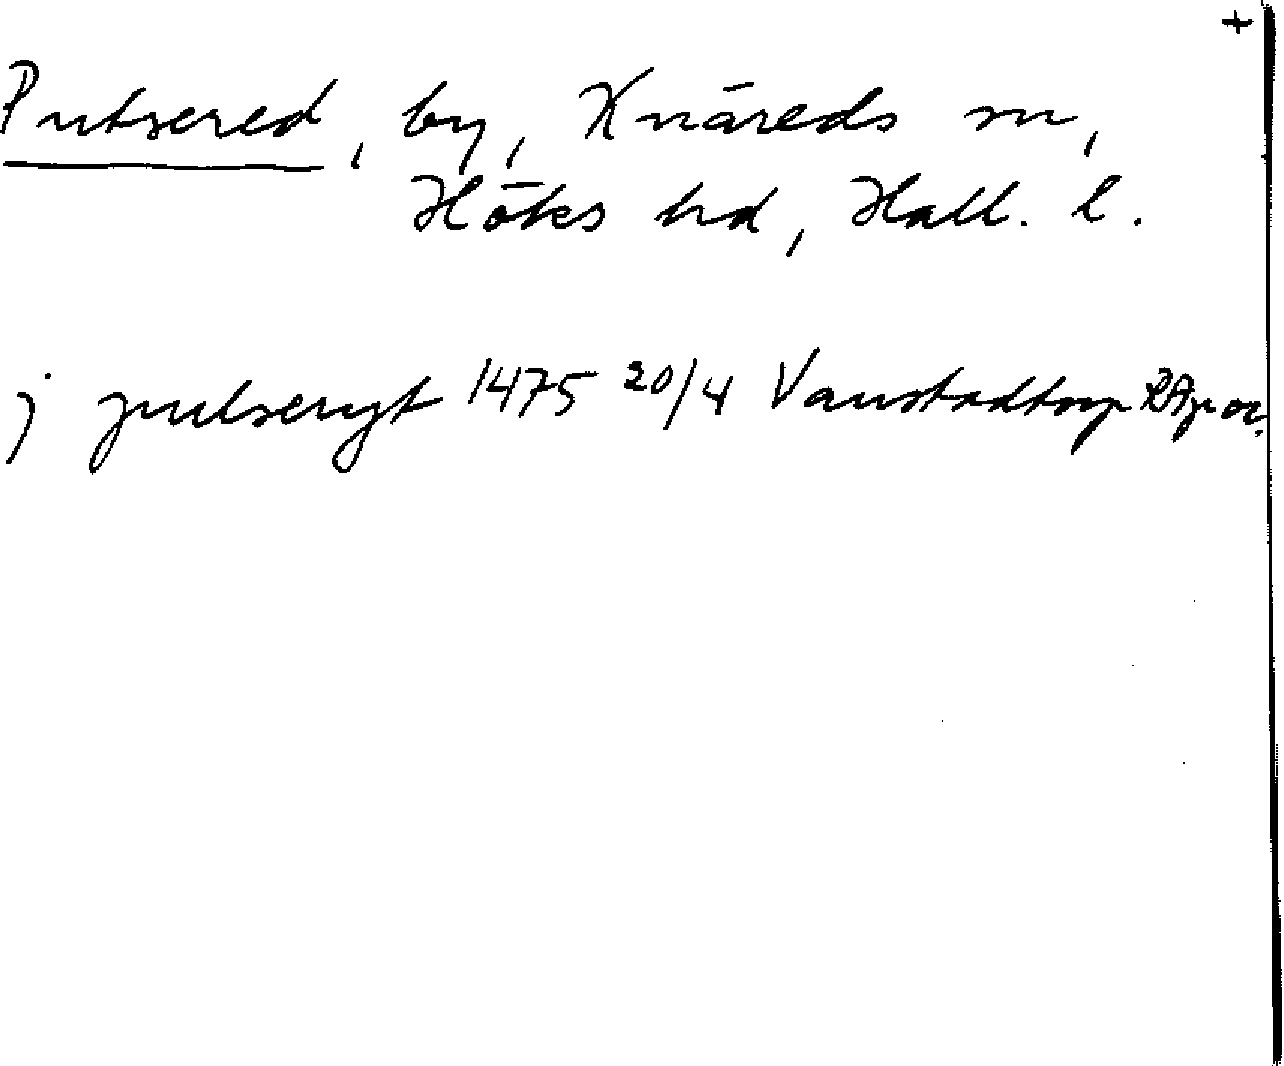 +
Putsered, by, Knäreds sn,
Höks hd, Hall. l.
j pulseryt 1475 20/4 Vanstadtorp RAp or.